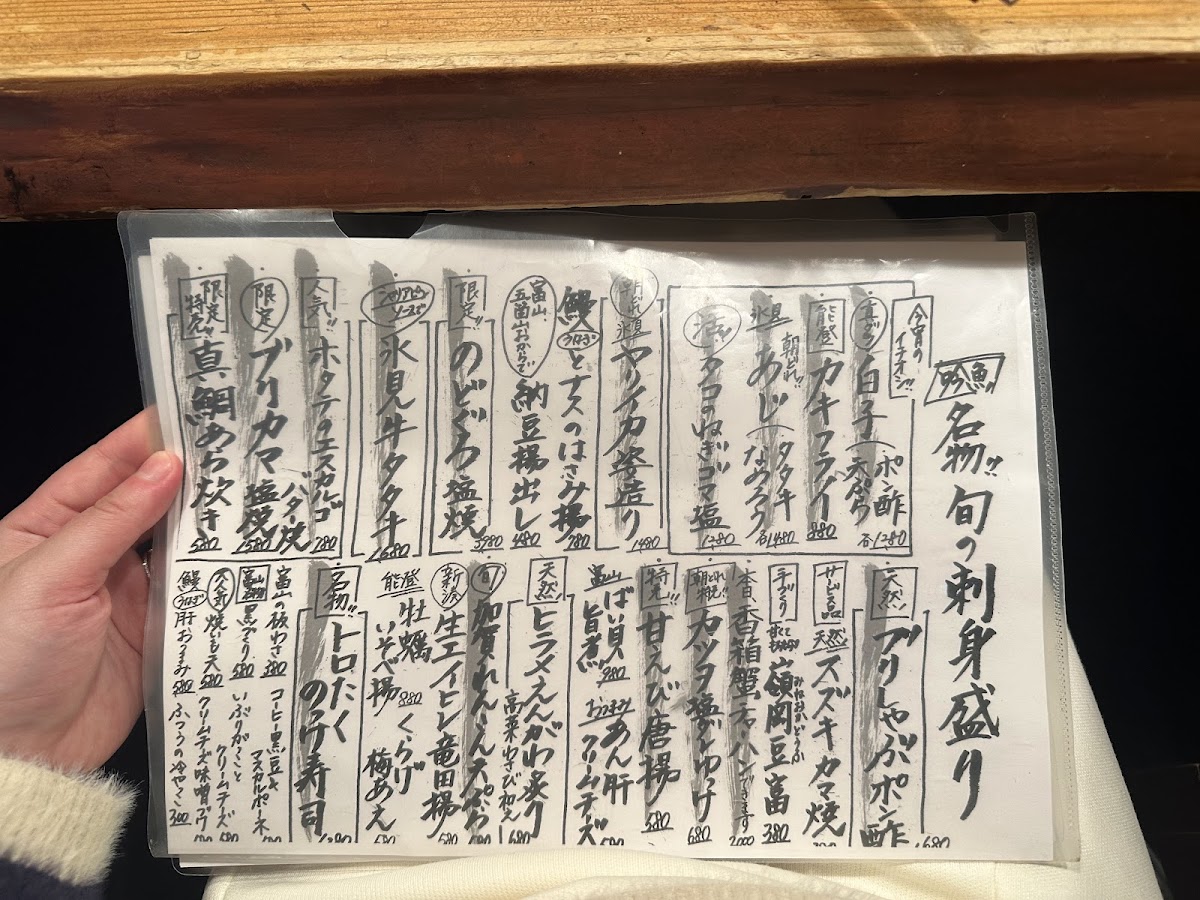 魚
名物!! 旬の刺身盛り
今宵のイチオシ!!
真ダラ 白子 ポン酢 天ぷら 各1280
能登 カキフライ 880
氷見 朝どれ!! あじ タタキ なめろう 各1480
活!! タコのねぎゴマ塩 1280
朝どれ 氷見 ヤリイカ姿造り 1480
鰻 とナスのはさみ揚 780
富山 五箇山おからで 納豆揚出し 480
限定!! のどぐろ塩焼 3980
氷見牛タタキ 1680
人気!! ホタテのエスカルゴバター焼 780
限定 ブリカマ塩焼 1580
限定 特売!! 真鯛あら炊き 580
天然! ブリしゃぶポン酢 1680
サービス品 天然 スズキカマ焼
手づくり 嶺岡豆富 みねおかどうふ 380
本日 香箱蟹チャーハンできます 2000
朝どれ 特売!! カツヲ塩ダレゆっけ 680
特売!! 甘えび唐揚 580
富山 ばい貝旨煮 980
あん肝クリームチーズ
天然 ヒラメえんがわ炙り
高菜わさび和え 680
旬! 加賀れんこん天ぷら 580
新派 生エイヒレ竜田揚 580
能登 牡蠣いそべ揚 880
くらげ梅あえ
名物!! トロたくのっけ寿司
富山の板わさ 380
コーヒー黒豆とマスカルポーネ
富山 黒づくり 580
いぶりがっことクリームチーズ
焼いも天 580
クリームチーズ味噌
鰻 肝おつまみ 580
ふつうの冷やっこ 300